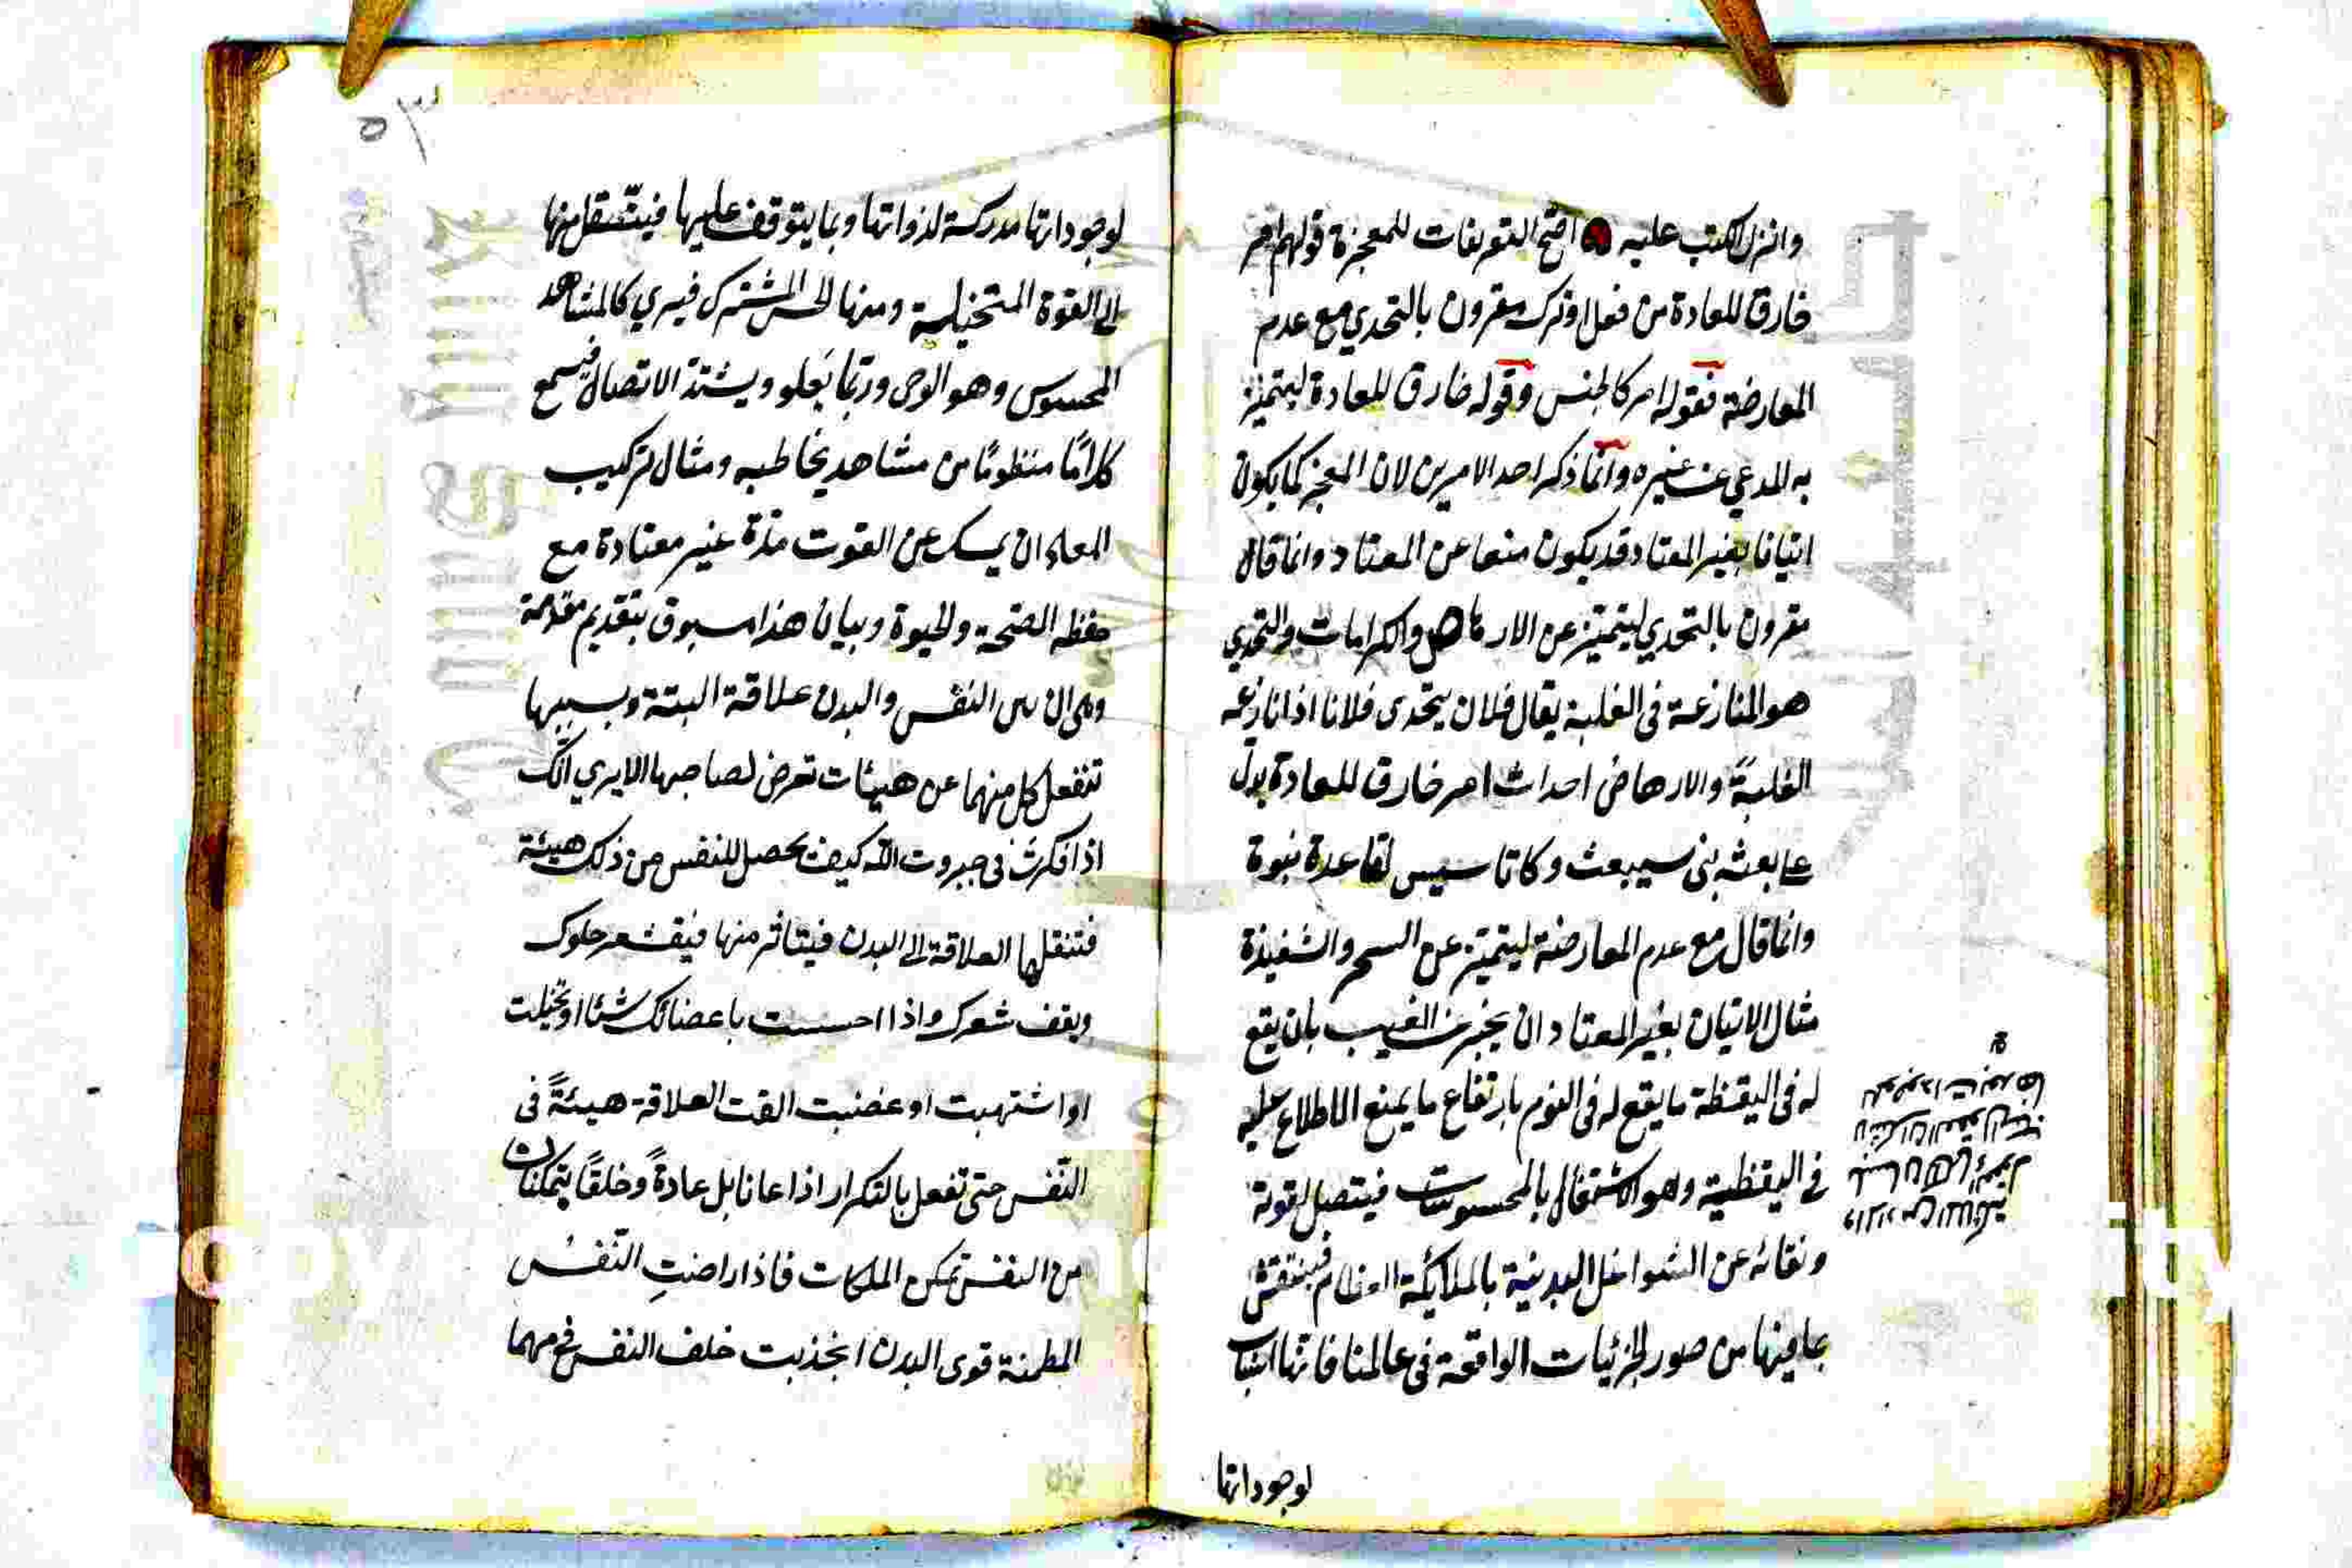 وانزل الكتب عليه اصح التعريفات للمعجزة قولهم امر
خارق للعادة من فعل او ترك مقرون بالتحدي مع عدم
المعارضة فقوله امر كالجنس وقوله خارق للعادة ليتميز
به المدعي عن غيره وانما ذكر احد الامرين لان المعجز كما يكون
اتيانا بغير المعتاد قد يكون منعا عن المعتاد وانما قال
مقرون بالتحدي ليتميز عن الارهاص والكرامات والتحدي
هو المنازعة فى الغلبة يقال فلان يتحدى فلانا اذا نازعه
الغلبة والارهاص احداث امر خارق للعادة يدل
على بعثة نبى سيبعث وكانه تاسيس لقاعدة نبوة
وانما قال مع عدم المعارضة ليتميز عن السحر والشعبذة
مثال الاتيان بغير المعتاد ان يخبر عن الغيب بان يقع
له فى اليقظة ما يقع له فى النوم بارتفاع ما يمنع الاطلاع عليه
فى اليقظة وهو الاشتغال بالمحسوسات فيتصل لقوته
ونقائه عن الشواغل البدنية بالملائكة العظام فينتقش
بما فيها من صور الجزئيات الواقعة فى عالمنا فانها اسباب
لوجوداتها
٣٥
لوجوداتها مدركة لذواتها وبما يتوقف عليها فينتقل منها
الى القوة المتخيلة ومنها الى الحس المشترك فيري كالمشاهد
المحسوس وهو الوحى وربما يعلو ويشتد الاتصال فيسمع
كلاما منظوما من مشاهد يخاطبه ومثال ترك
المعتاد ان يمسك عن القوت مدة غير معتادة مع
حفظ الصحة والحيوة وبيان هذا مسبوق بتقديم مقدمة
وهى ان بين النفس والبدن علاقة البتة وبسببها
تنفعل كل منهما عن هيئات تعرض لصاحبها الا يري انك
اذا فكرت فى جبروت الله كيف يحصل للنفس من ذلك هيئة
فتنقلها العلاقة الى البدن فيتاثر منها فيقشعر جلدك
ويقف شعرك واذا احسست باعضائك شيئا او تخيلت
او اشتهيت او غضبت القت العلاقة هيئة فى
النفس حتى تفعل بالتكرار اذعانا بل عادة وخلقا يتمكنان
من النفس تمكن الملكات فاذا راضت النفس
المطمئنة قوى البدن انجذبت خلف النفس فى مهما